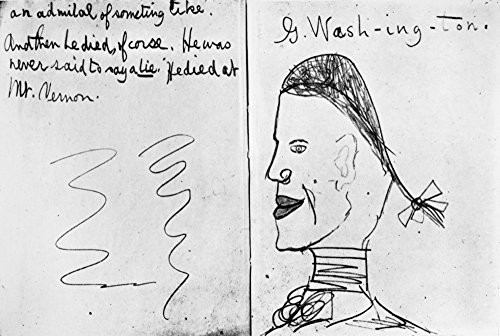 an admiral of someting like.
And then he died, of corse. He was
never said to say a lie. He died at
Mt. Vernon.
G. Wash-ing-ton.